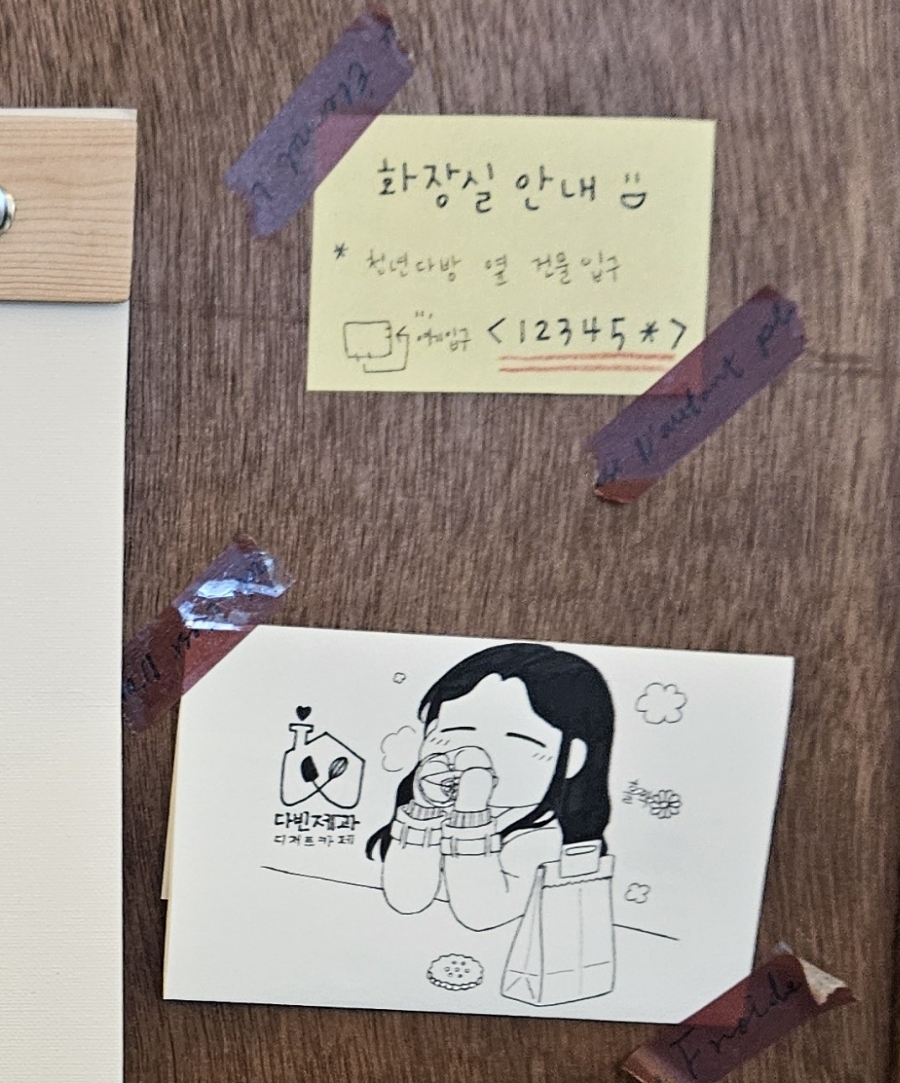 화장실 안내
* 청년다방 옆 건물 입구
여기입구 <12345*>
다빈제과
디저트카페
호록
Froide